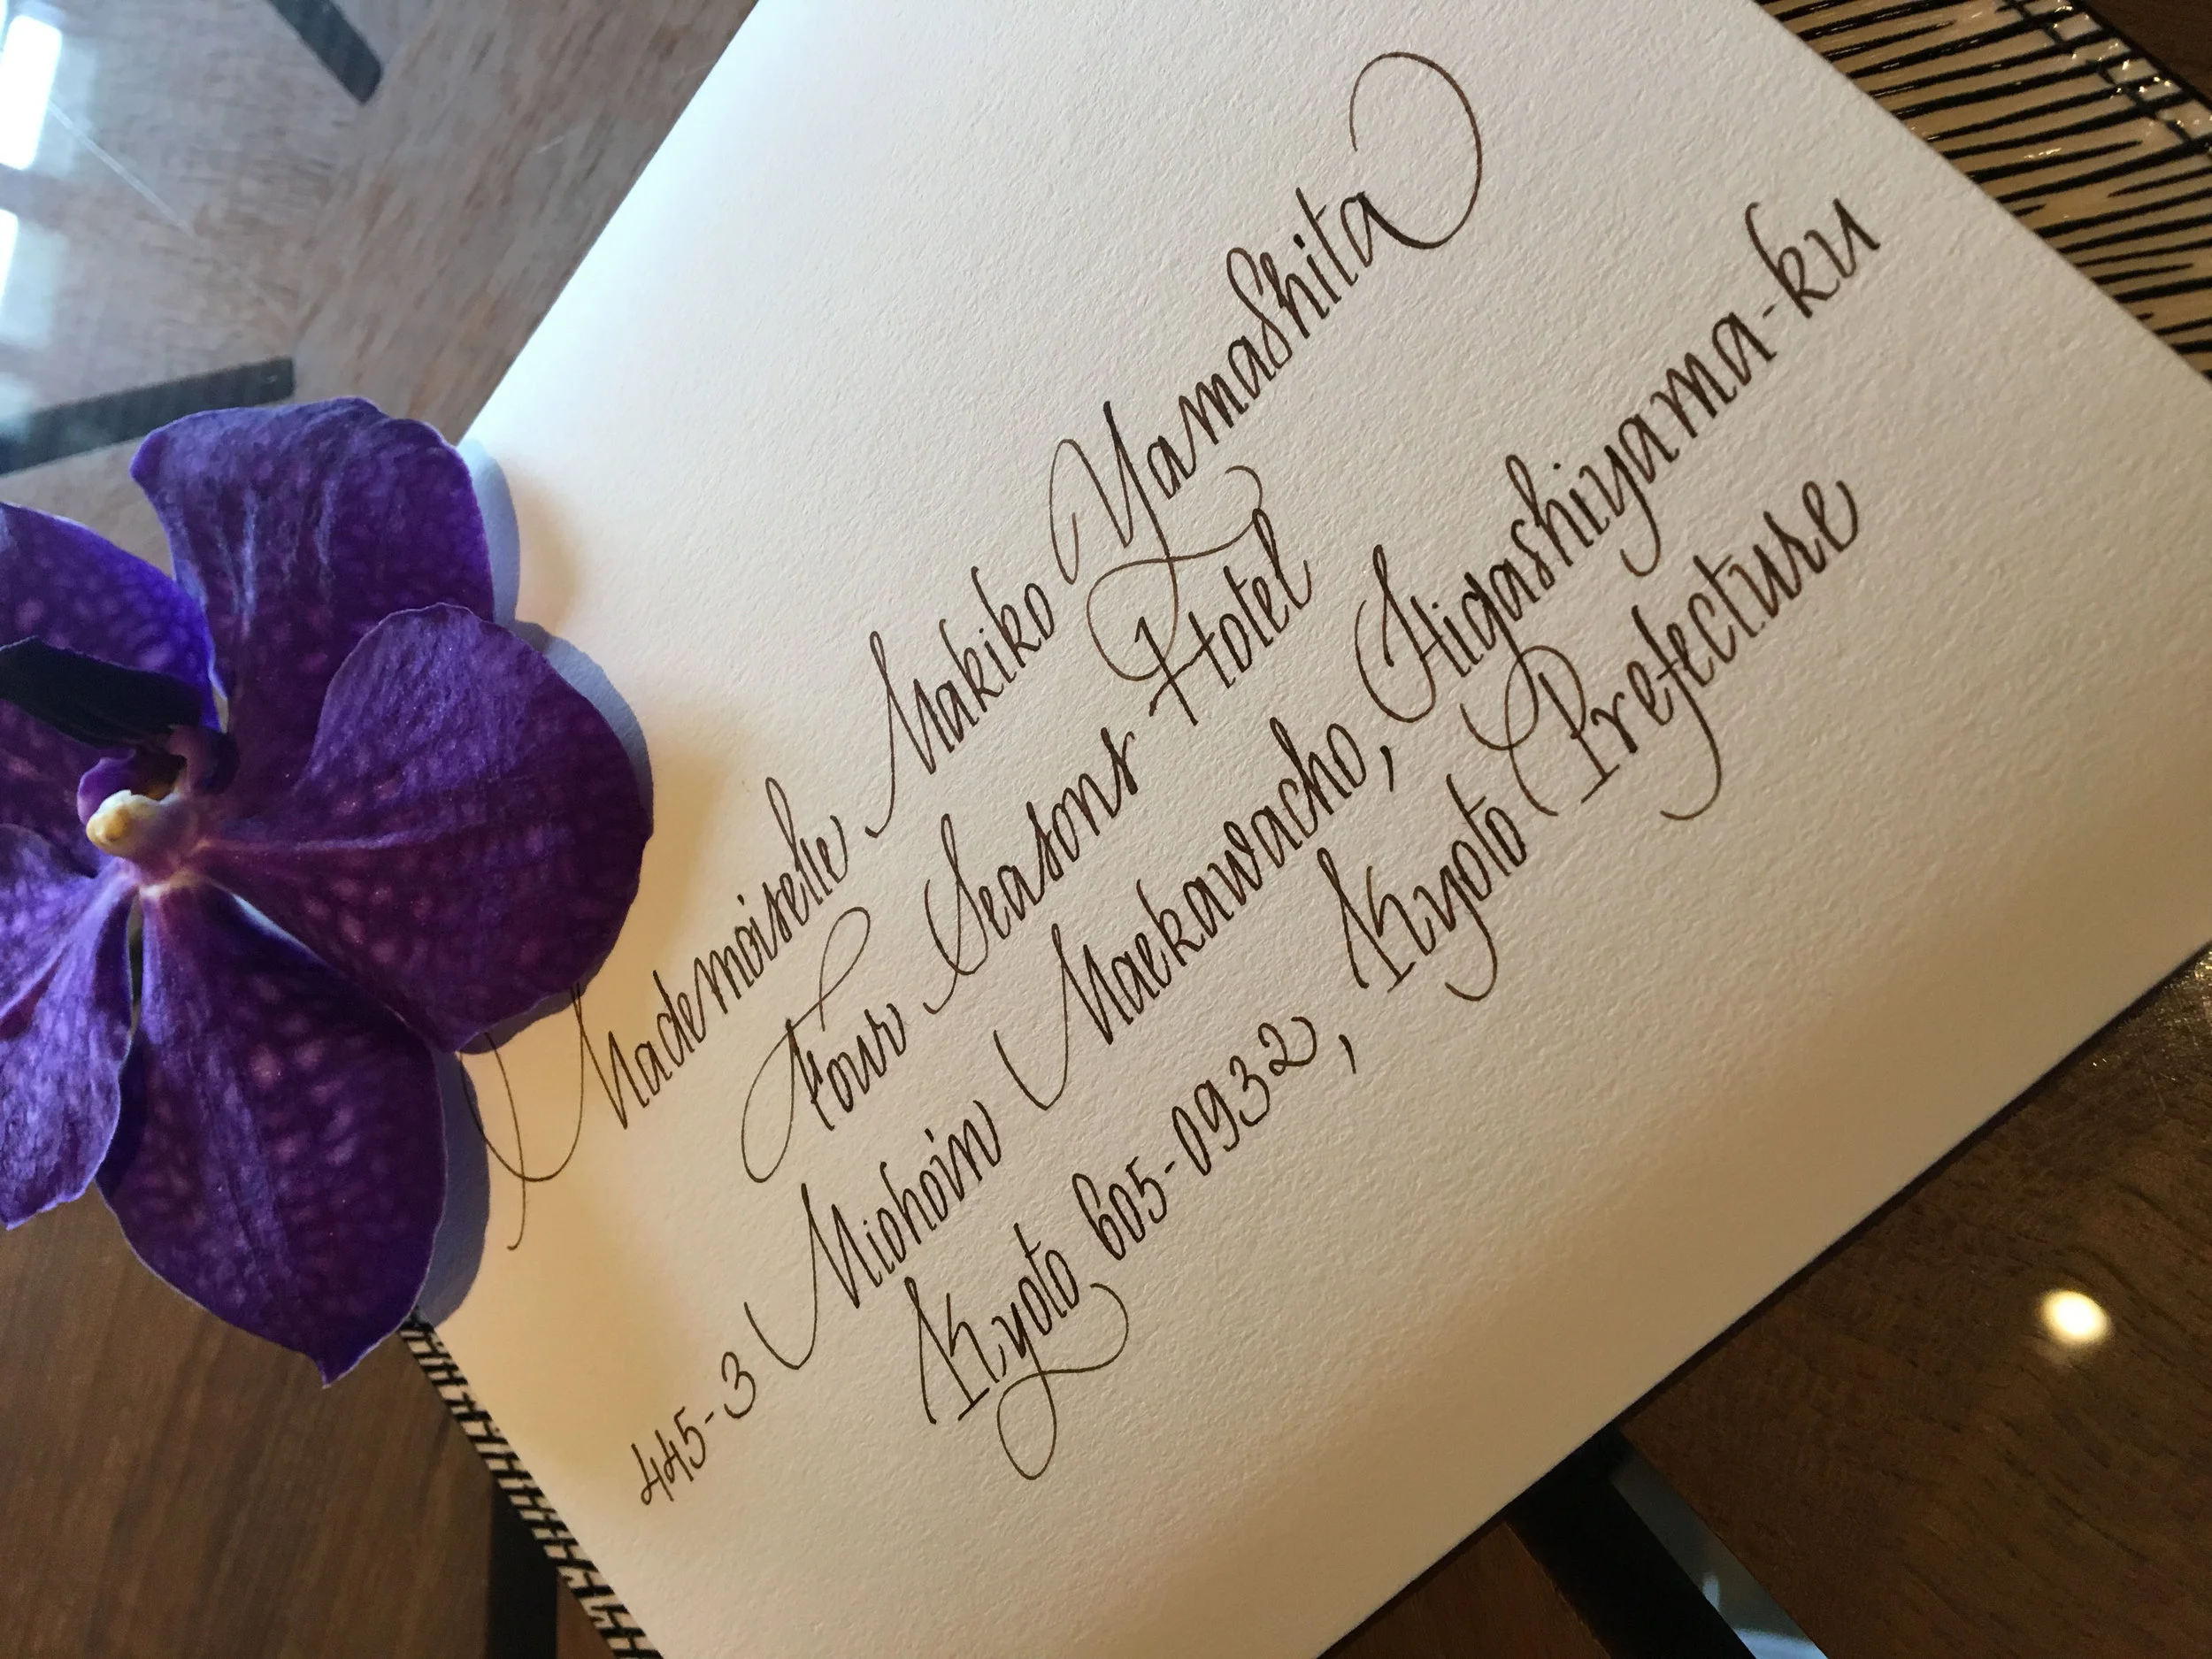 Mademoiselle Makiko Yamashita
Four Seasons Hotel
445-3 Miohoin Maekawacho, Higashiyama-ku
Kyoto 605-0932, Kyoto Prefecture